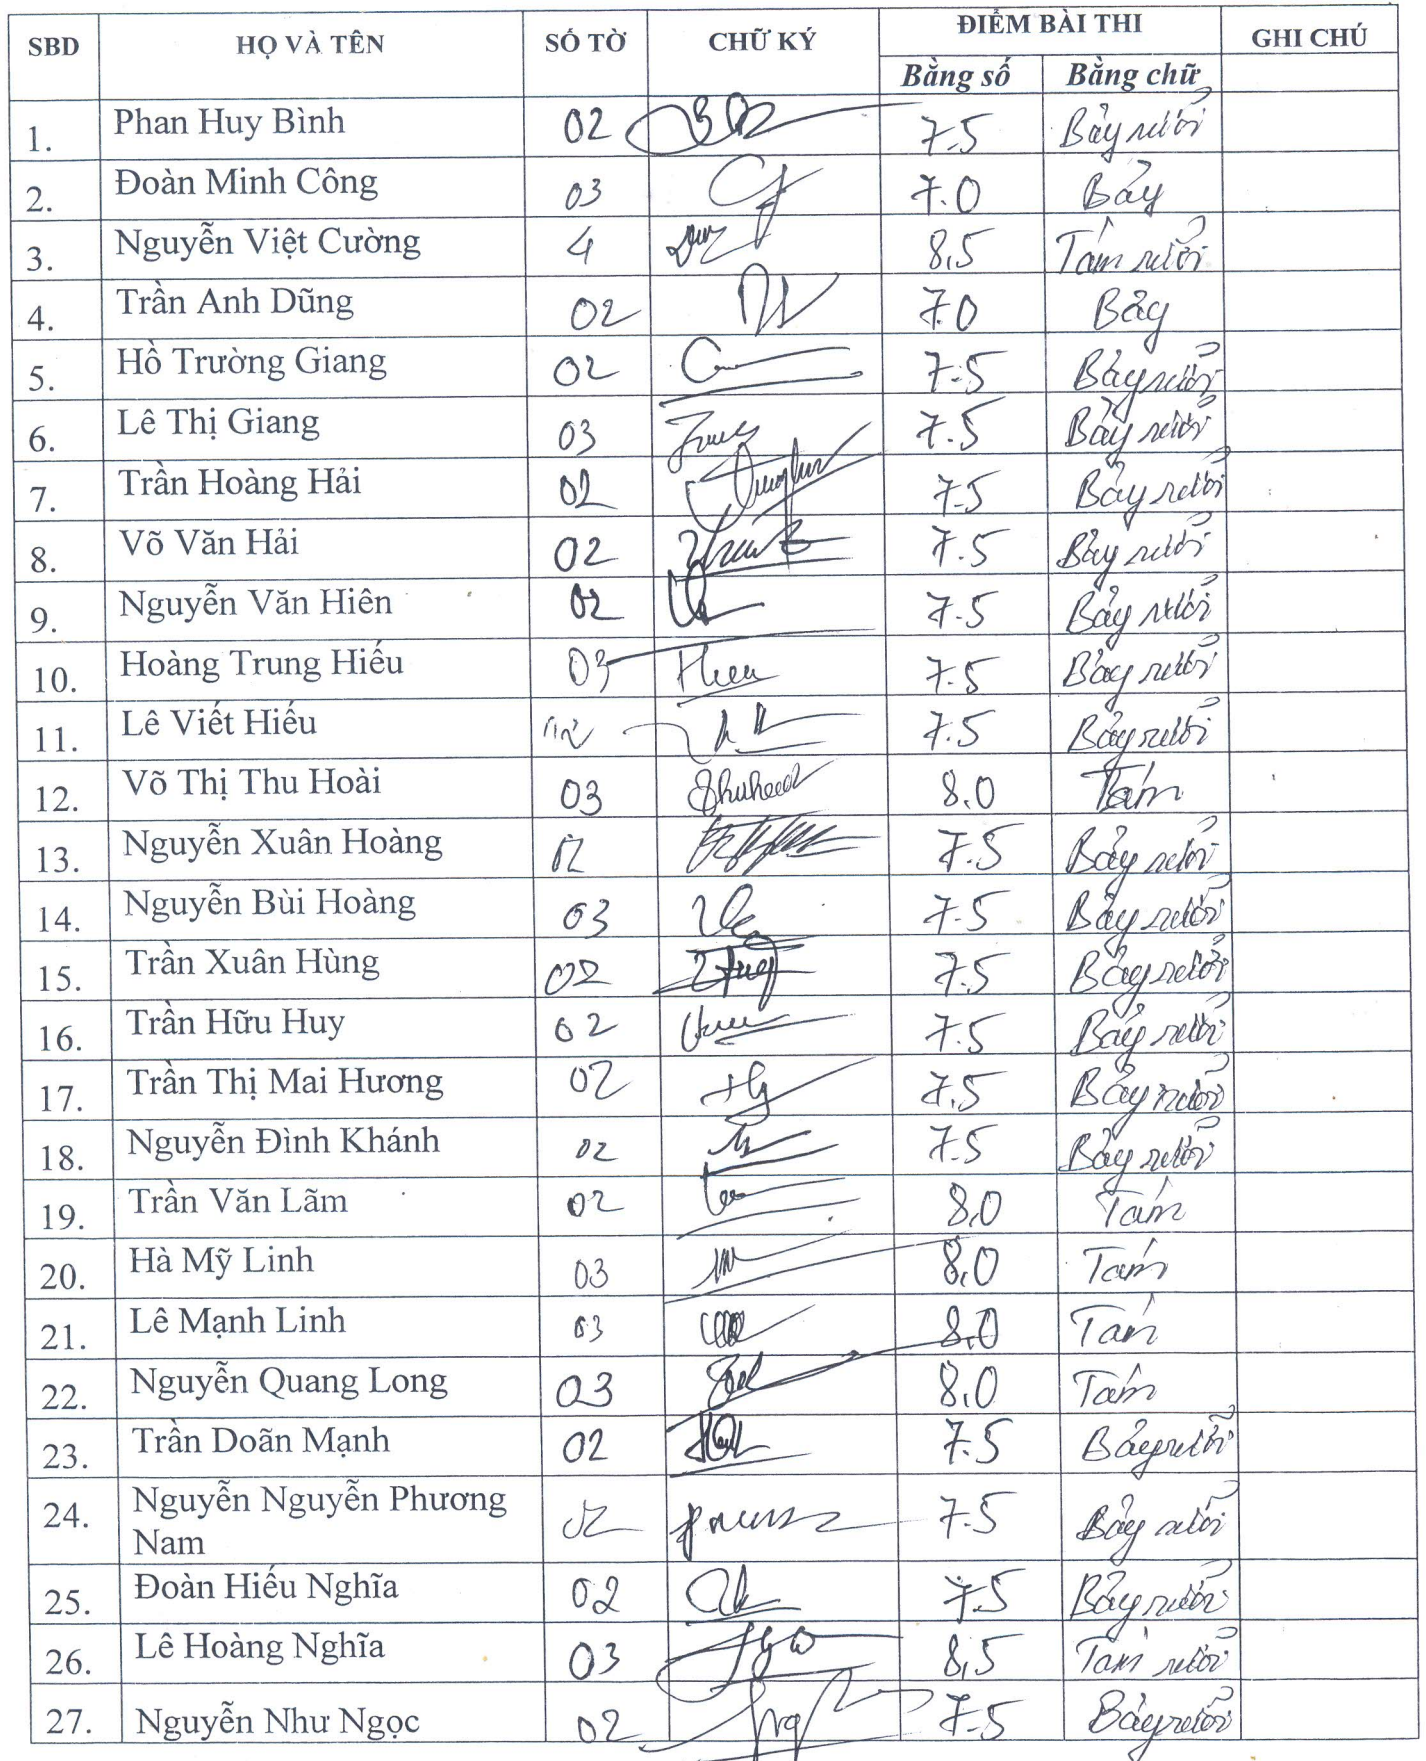 SBD HỌ VÀ TÊN SỐ TỜ CHỮ KÝ ĐIỂM BÀI THI GHI CHÚ
Bằng số Bằng chữ
1. Phan Huy Bình 02 7.5 Bảy rưỡi
2. Đoàn Minh Công 03 7.0 Bảy
3. Nguyễn Việt Cường 4 8,5 Tám rưỡi
4. Trần Anh Dũng 02 7.0 Bảy
5. Hồ Trường Giang 02 7.5 Bảy rưỡi
6. Lê Thị Giang 03 7.5 Bảy rưỡi
7. Trần Hoàng Hải 02 7.5 Bảy rưỡi
8. Võ Văn Hải 02 7.5 Bảy rưỡi
9. Nguyễn Văn Hiên 02 7.5 Bảy rưỡi
10. Hoàng Trung Hiếu 03 Hieu 7.5 Bảy rưỡi
11. Lê Viết Hiếu 02 7.5 Bảy rưỡi
12. Võ Thị Thu Hoài 03 8.0 Tám
13. Nguyễn Xuân Hoàng 02 7.5 Bảy rưỡi
14. Nguyễn Bùi Hoàng 03 7.5 Bảy rưỡi
15. Trần Xuân Hùng 02 7.5 Bảy rưỡi
16. Trần Hữu Huy 02 7.5 Bảy rưỡi
17. Trần Thị Mai Hương 02 7.5 Bảy rưỡi
18. Nguyễn Đình Khánh 02 7.5 Bảy rưỡi
19. Trần Văn Lãm 02 8,0 Tám
20. Hà Mỹ Linh 03 8,0 Tám
21. Lê Mạnh Linh 03 8,0 Tám
22. Nguyễn Quang Long 03 8,0 Tám
23. Trần Doãn Mạnh 02 7.5 Bảy rưỡi
24. Nguyễn Nguyễn Phương 02 7.5 Bảy rưỡi
Nam
25. Đoàn Hiếu Nghĩa 02 7.5 Bảy rưỡi
26. Lê Hoàng Nghĩa 03 8,5 Tám rưỡi
27. Nguyễn Như Ngọc 02 7.5 Bảy rưỡi